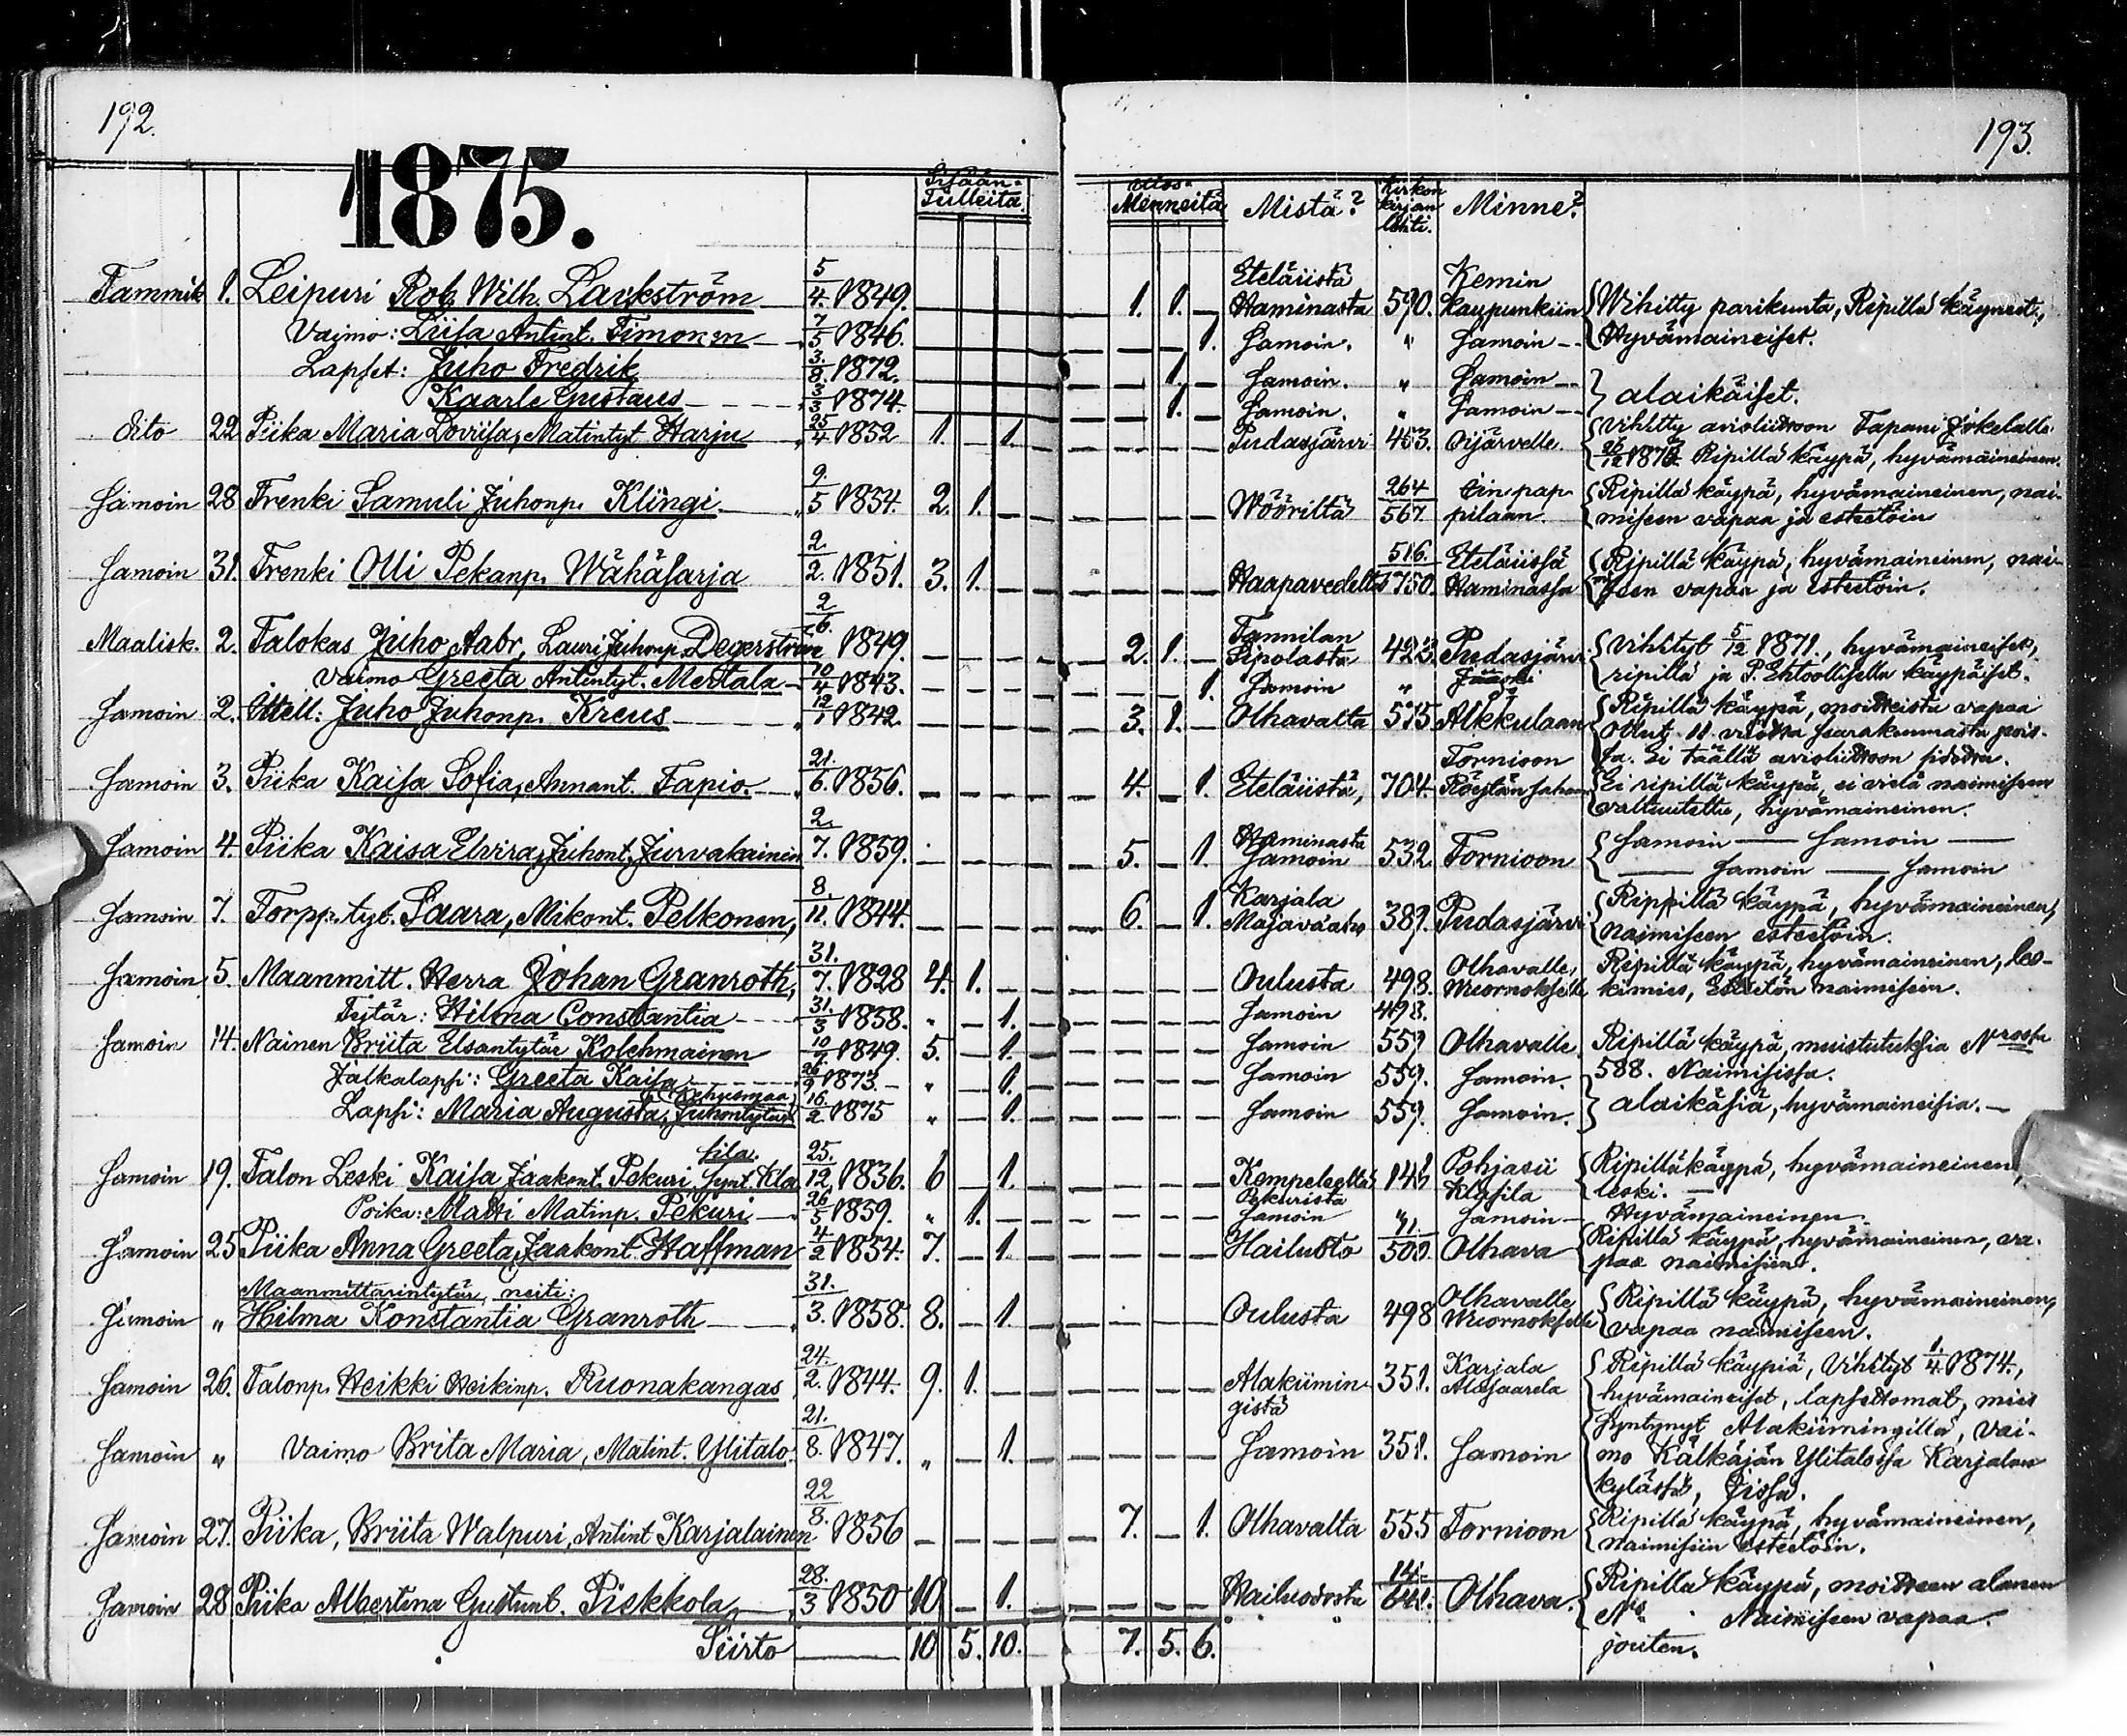 192.
193.
1875.
Sisään-
Tulleita.
Ulos-
Menneitä
Mistä?
Kirkon
kirjan
Lehti.
Minne?
Tammik. 1. Leipuri Rob. Wilh. Laukström 5/4. 1849. 1. 1. Eteläiistä Haminasta 590. Kemin kaupunkiin Wihitty parikunta, Ripillä käyneet,
Vaimo: Liisa Antint. Timonen 7/5 1846. 1. Samoin. " Samoin Hyvämaineiset.
Lapset: Juho Fredrik 3./8. 1872. 1. Samoin. " Samoin
Kaarle Gustaus 3/3 1874. 1. Samoin. " Samoin alaikäiset.
dito 22 Piika Maria Loviisa, Matintyt Harju 25/4 1852 1. 1. Pudasjärvi 453. Oijärvelle. vihitty avioliittoon Tapani Jokelalle
26/12 187 Ripillä käypä, hyvämaineinen.
Samoin 28 Trenki Samuli Juhonp. Klingi. 9/5 1854. 2. 1. Wöyriltä 264/567. Iin pap- Ripillä käypä, hyvämaineinen, nai-
pilaan. miseen vapaa ja esteetöin
Samoin 31. Trenki Olli Pekanp. Wähäsarja 2/2. 1851. 3. 1. Haapavedeltä 516./750. Eteläiissä Haminassa Ripillä käypä, hyvämaineinen, nai-
seen vapaa ja esteetöin.
Maalisk. 2. Talokas Juho Aabr, Lauri Juhonp. Degerström 2/6. 1849. 2. 1. Tannilan Sipolasta 423. Pudasjärvi Vihityt 5/12 1871., hyvämaineiset,
Vaimo Greeta Antintyt. Mertala 10/4 1843. 1. Samoin " ripillä ja P. Ehtoollisella käypäiset.
Samoin 2. Itsell: Juho Juhonp. Kreus 12/1 1842. 3. 1. Olhavalta 575 Alkkulaan Ripillä käypä, moitteista vapaa
Ollut 11 vuotta seurakunnasta pois-
Tornioon sa. Ei täällä avioliittoon sidottu.
Samoin 3. Piika Kaisa Sofia, Annant. Tapio. 21./6. 1856. 4. 1. Eteläiistä, 704. Röytän sahan Ei ripillä käypä, ei vielä naimiseen
valtuutettu, hyvämaineinen.
Samoin 4. Piika Kaisa Elvira, Juhont. Jurvakainen 2./7. 1859. 5. 1. Haminasta Samoin 532. Tornioon Samoin Samoin
Samoin Samoin
Samoin 7. Torpp. tyt. Saara, Mikont. Pelkonen, 8./11. 1844. 6. 1. Karjala Majavaaha 389. Pudasjärvi Rippillä käypä, hyvämaineinen,
naimiseen esteetöin.
Samoin 5. Maanmitt. Herra Johan Granroth, 31./7. 1828 4. 1. Oulusta 498. Olhavalle, Wuornokselle Ripillä käypä, hyvämaineinen, les-
kimies, Esteetön naimiseen.
Tytär: Hilma Constantia 31./3 1858. " 1. Samoin 498.
Samoin 14. Nainen Briita Elsantytär Kolehmainen 10/7 1849. 5. 1. Samoin 559 Olhavalle. Ripillä käypä, muistutuksia Nrossa
Jalkalapsi: Greeta Kaisa 26/9 1873. " 1. Samoin 559. Samoin. 588. Naimisissa.
Lapsi: Maria Augusta, Juhontytär 16./2 1875 " 1. Samoin 559. Samoin. alaikäsiä, hyvämaineisia.
Samoin 19. Talon Leski Kaisa Jaakont. Pekuri synt. Klasila. 25./12. 1836. 6 1. Kempeleeltä 148 Pohjasii Klasila Ripillä käypä, hyvämaineinen,
leski.
Poika: Matti Matinp. Pekuri 26/5 1859. " 1. Pekurista Samoin " Samoin Hyvämaineinen.
Samoin 25 Piika Anna Greeta, Jaakont. Haffman 4/2 1854. 7. 1. Hailuoto 41./500. Olhava Ripillä käypä, hyvämaineinen, va-
paa naimiseen.
Maanmittarintytär, neiti:
Samoin " Hilma Konstantia Granroth 31./3. 1858. 8. 1. Oulusta 498 Olhavalle Wuornokselle Ripillä käypä, hyvämaineinen,
vapaa naimiseen.
Samoin 26. Talonp. Heikki Heikinp. Ruonakangas 24./2. 1844. 9. 1. Alakiimin- 351. Karjala Alasaarela Ripillä käypiä, Vihityt 1./4. 1874.,
gistä hyvämaineiset, lapsettomat, mies
syntynyt Alakiimingillä, vai-
Samoin " Vaimo Brita Maria, Matint. Ylitalo 21./8. 1847. " 1. Samoin 351. Samoin mo Kälkäjän Ylitalossa Karjalan
kylässä, Iissä.
Samoin 27. Piika, Briita Walpuri, Antint Karjalainen 22/8. 1856 7. 1. Olhavalta 555 Tornioon Ripillä käypä, hyvämaineinen,
naimisiin esteetöin.
Samoin 28 Piika Albertina Gustunt. Pickkola 28./3 1850 10 1. Hailuodosta 14./641. Olhava. Ripillä käypä, moitteen alanen
Naimiseen vapaa.
jouten.
Siirto 10 5. 10. 7. 5. 6.